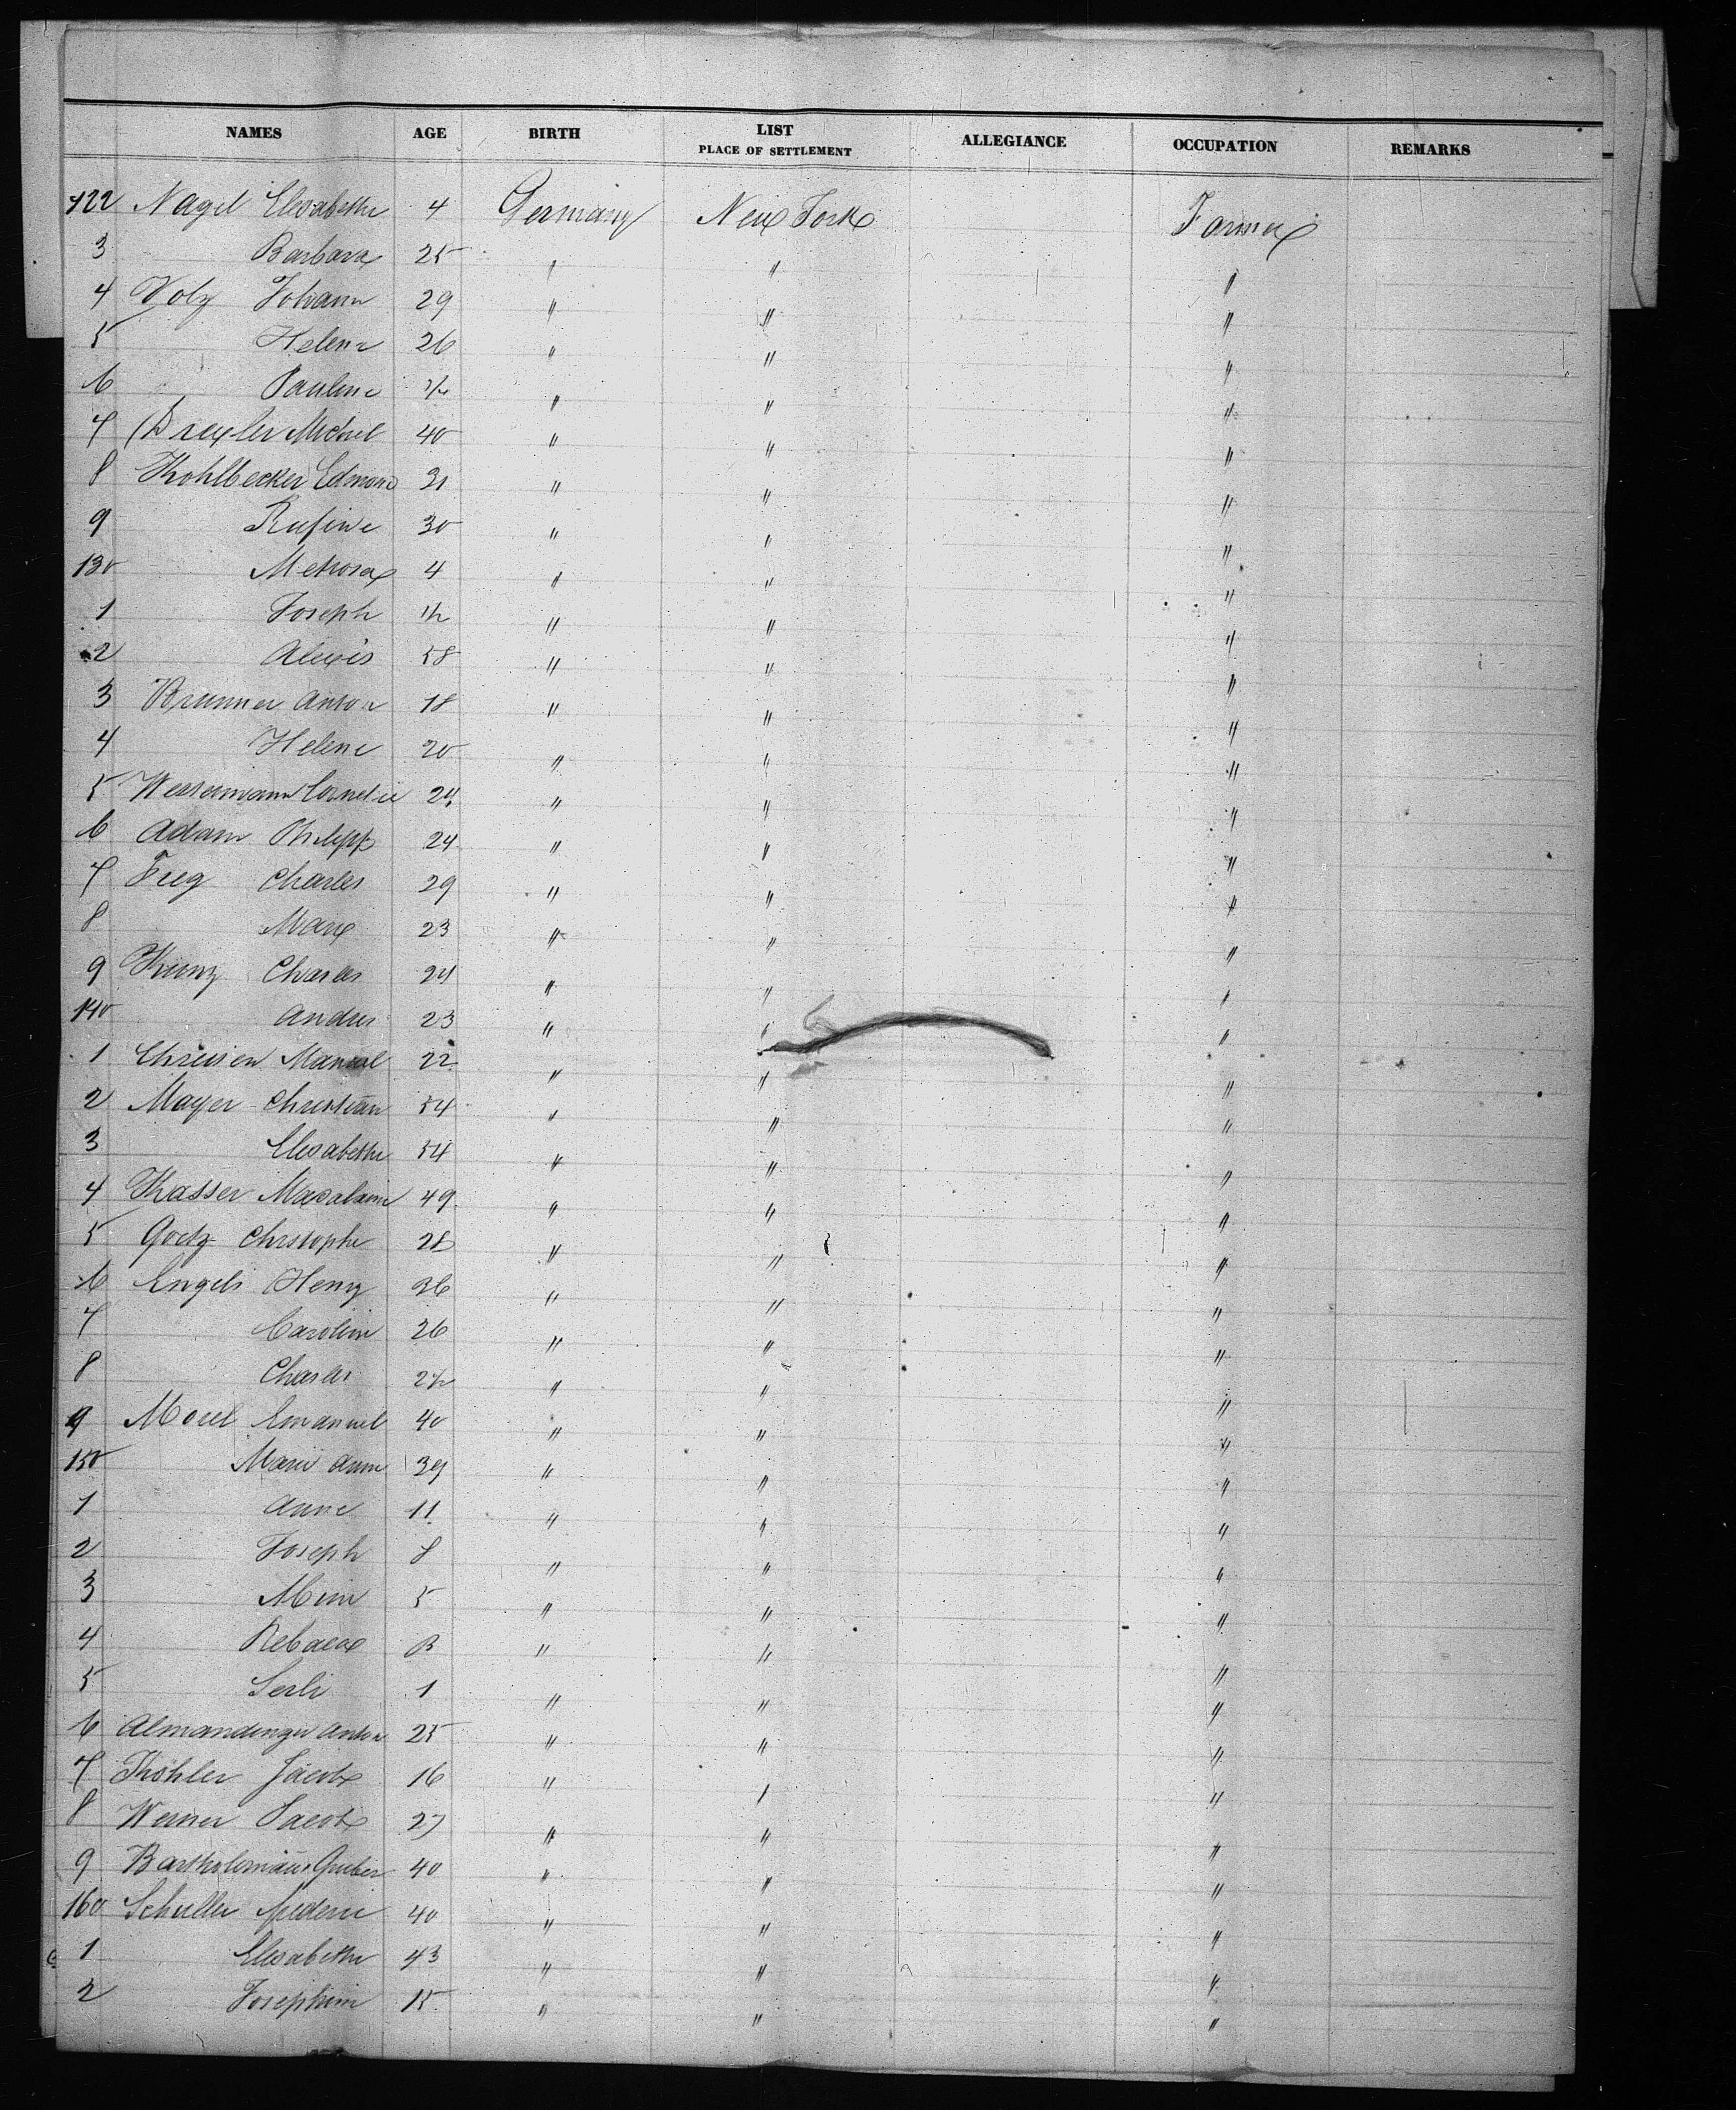 NAMES AGE BIRTH LIST PLACE OF SETTLEMENT ALLEGIANCE OCCUPATION REMARKS
122 Nagel Elisabethe 4 Germany New York Farmer
3 Barbara 25 " " "
4 Volz Johann 29 " " "
5 Helene 26 " " "
6 Pauline " " "
7 Drexler Michel 40 " " "
8 Kohlbecker Edmond 31 " " "
9 Rufine 30 " " "
130 4 " " "
1 Joseph 1/2 " " "
2 Alexis 58 " " "
3 Brunner Anton 18 " " "
4 Helene 20 " " "
5 Westermann Cornelie 24 " " "
6 Adam Philipp 24 " " "
7 Charles 29 " " "
8 Marie 23 " " "
9 Kunz Charles 24 " " "
140 Andres 23 " " "
1 22 " " "
2 Mayer Christian 54 " " "
3 Elisabethe 54 " " "
4 Kasser 49 " " "
5 Goetz Christophe 28 " " "
6 Engels Henry 36 " " "
7 Caroline 26 " " "
8 Charles " " "
9 Emanuel 40 " " "
150 Marie Anne 39 " " "
1 Anne 11 " " "
2 Joseph 8 " " "
3 5 " " "
4 3 " " "
5 1 " " "
6 Almandinger Anton 25 " " "
7 Köhler Jacob 16 " " "
8 Werner Jacob 27 " " "
9 Bartholomäus Gruber 40 " " "
160 Schuller 40 " " "
1 Elisabethe 43 " " "
2 Josephine 15 " " "